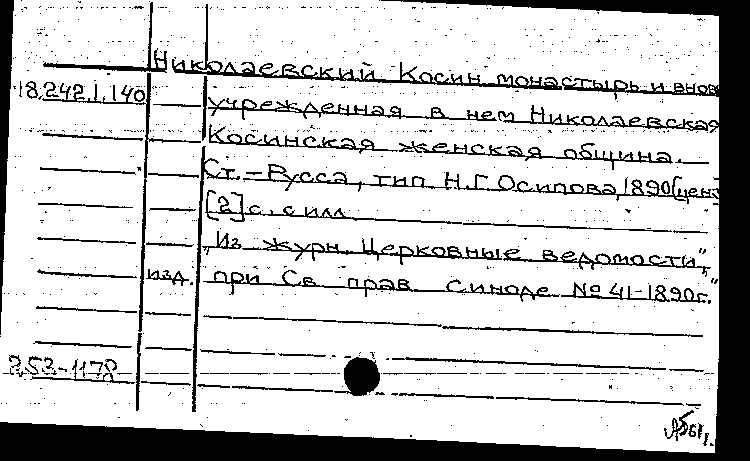 Николаевский Косин. монастырь и внов
18.242.1.140 учрежденная в нем Николаевская
Косинская женская община.
Ст.-Русса, тип. Н.Г. Осипова, 1890 [ценз.
[2] с. с илл.
"Из журн. Церковные ведомости",
изд. при Св. прав. синоде № 41-1890г."
253-1178